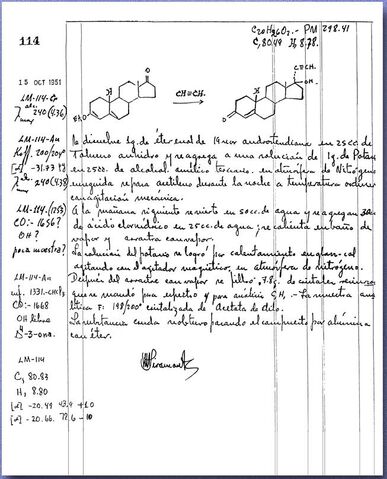 114
C₂₀H₂₆O₂.- PM 298.41
C, 80.49 H, 8.78.
15 OCT 1951
CH≡CH.
C≡CH.
OH.
EtO
O
O
LM-114-Cr
λ alc. max 240 (4.36)
LM-114-Au
Koff. 200/204°
[α] -31.73
λ alc. max 240 (4.38)
LM-114. (1253)
CO:- 1656?
OH?
poca muestra?
LM-114-Au
1331.-CHCl₃
CO:- 1668
OH libre
Δ⁴-3-ona.
LM-114
C, 80.83
H, 8.80
[α] -20.49
[α] -20.66.
Se disuelve 1g. de éter enol de 19 nor androstendiona en 25cc. de
tolueno anhidro y se agrega a una solución de 1g. de Potasio
en 25cc. de alcohol amílico terciario, en atmósfera de Nitrógeno
enseguida se pasa acetileno durante la noche a temperatura
agitación mecánica.
A la mañana siguiente se vierte en 50cc. de agua y se agregan 30cc
de ácido clorhídrico en 25cc. de agua; se calienta en baño de
vapor y arrastra con vapor.
La solución del potasio se logró por calentamiento en
agitando con el agitador magnético, en atmósfera de nitrógeno.
Después del arrastre con vapor se filtró, 7.8g. de cristales
que se mandó para espectro y para análisis C,H,.- La muestra
F. 198/200° cristalizada de Acetato de etilo.
La substancia cruda se obtuvo pasando el compuesto por alúmina
con éter.
LMiramontes